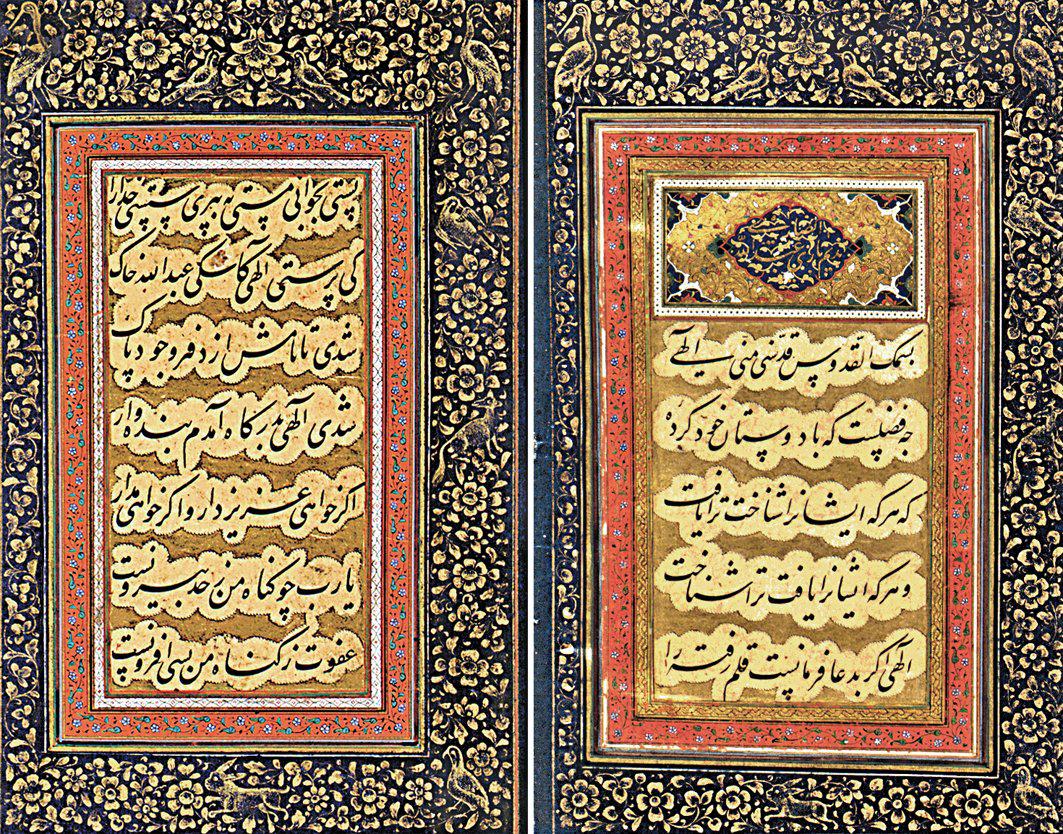 بسمک القدوس قدسنی الهی
چه فضلست که با دوستان خود کرده
که هر که ایشانرا شناخت ترا یافت
و هر که ایشانرا یافت ترا شناخت
الهی اگر بدعا فرمانیست قلم رفته را
پستی بجوانی مستی بپیری سستی خدارا
کی پرستی الهی کاشکی عبدالله خاک
شدی تا نامش از دفتر وجود پاک
شدی الهی بدرگاه آمدم بنده وار
اگر خواهی عزیز دار و اگر خواهی مدار
یارب چو گناه من ز حد بیرونست
عفوت ز گناه من بسی افزونست